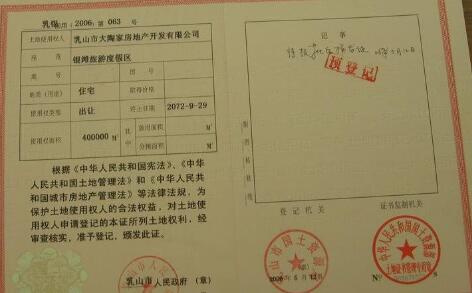 乳山 国用（2006）第 063 号
土地使用权人 乳山市大陶家房地产开发有限公司
座 落 银滩旅游度假区
地 号 图 号
地类（用途） 住宅 取得价格
使用权类型 出让 终止日期 2072-9-29
使用权面积 400000 M² 其中 独用面积 M²
分摊面积 M²
根据《中华人民共和国宪法》、《中华
人民共和国土地管理法》和《中华人民共
和国城市房地产管理法》等法律法规，为
保护土地使用权人的合法权益，对土地使
用权人申请登记的本证所列土地权利，经
审查核实，准予登记，颁发此证。
乳山市 人民政府（章）
记 事
预登记
登 记 机 关
证书监制机关